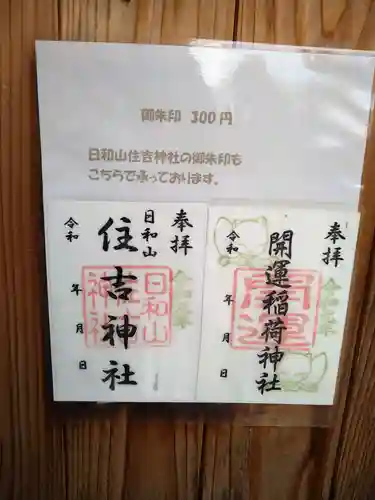 御朱印 300円
日和山住吉神社の御朱印も
こちらで承っております。
奉拝
開運稲荷神社
令和
年 月 日
開運
奉拝
日和山
住吉神社
令和
年 月 日
日和山
住吉
神社